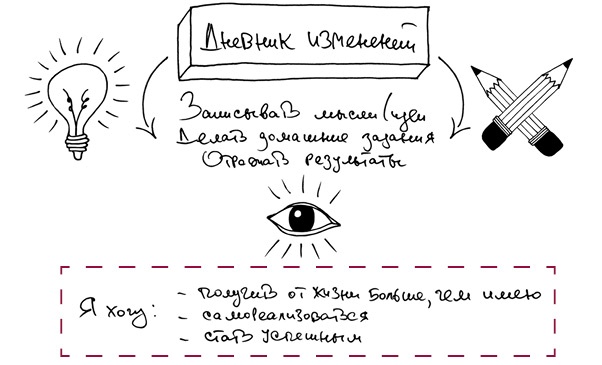 Дневник изменений
Записывать мысли/идеи
Делать домашние задания
Отражать результаты
Я хочу:
- получить от жизни больше, чем имею
- самореализоваться
- стать успешным